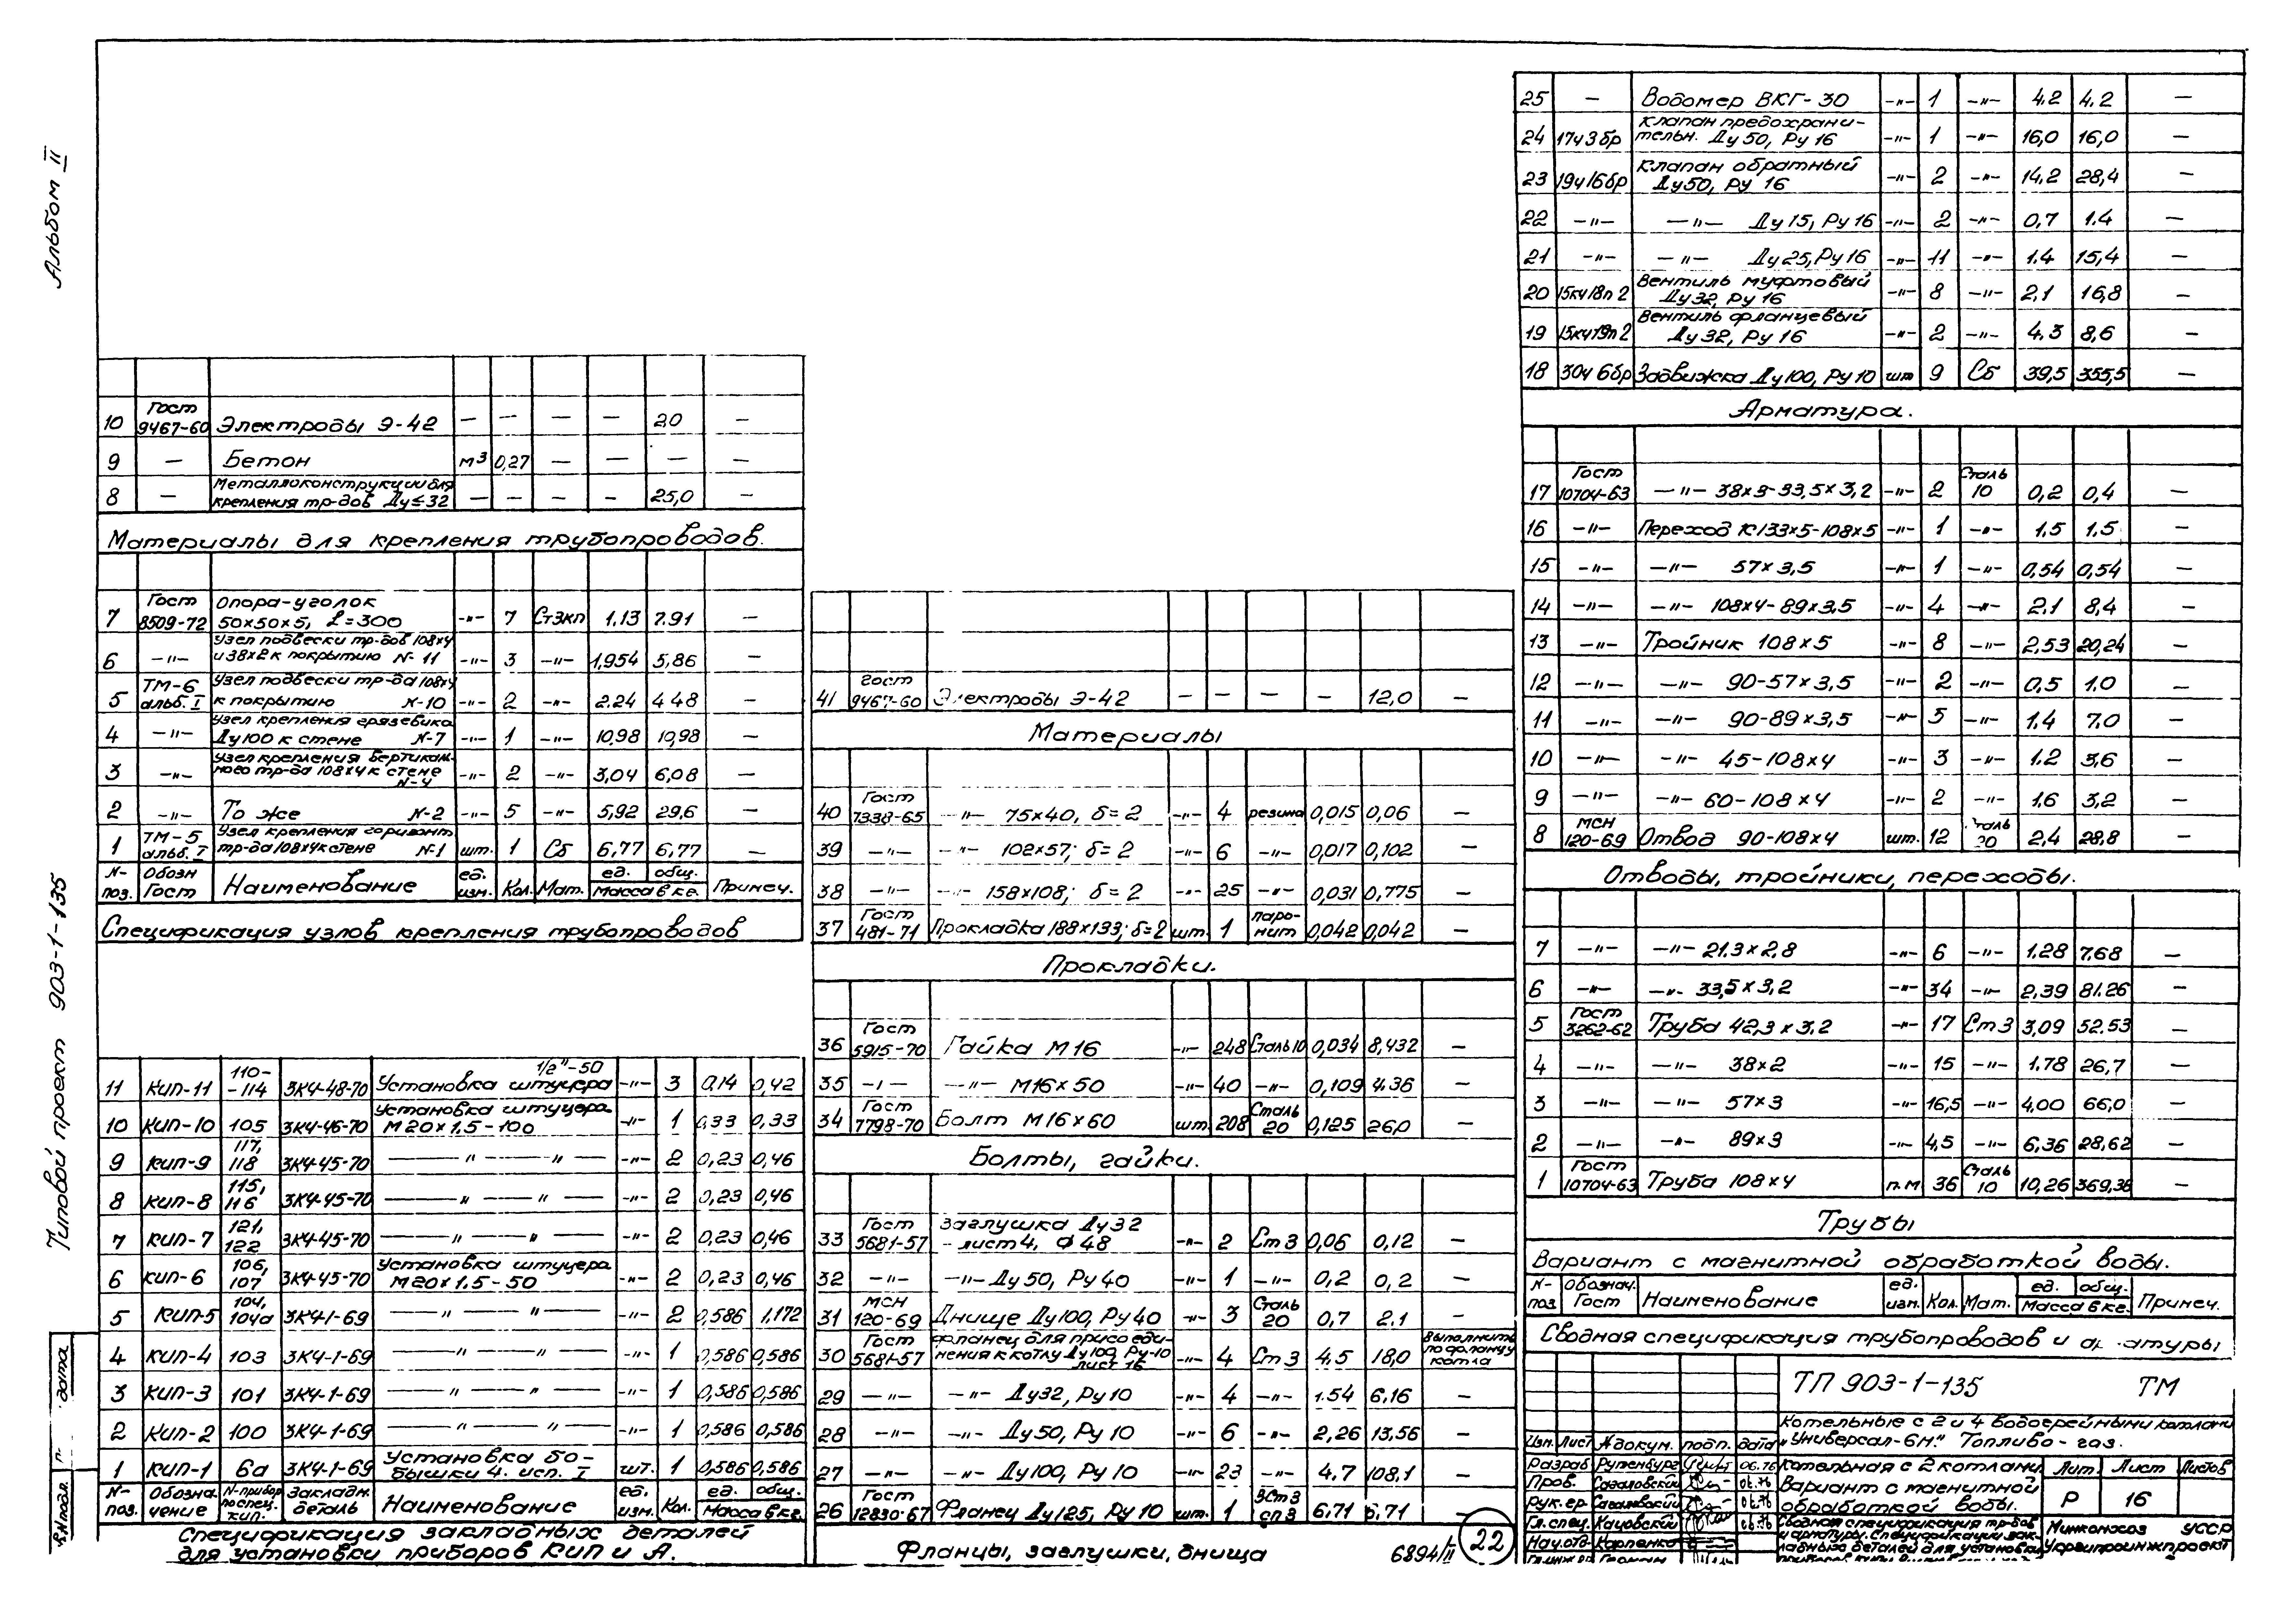 Альбом II
Типовой проект 903-1-135
10 Гост 9467-60 Электроды Э-42 — — — — 20 —
9 — Бетон м³ 0,27 — — — —
8 — Металлоконструкции для крепления тр-дов Ду≤32 — — — — 25,0 —
Материалы для крепления трубопроводов.
7 Гост 8509-72 Опора-уголок 50×50×5, ℓ=300 -"- 7 Ст3кп 1.13 7.91 —
6 -"- Узел подвески тр-дов 108×4 и 38×2 к покрытию №11 -"- 3 -"- 1,954 5,86 —
5 ТМ-6 альб. I Узел подвески тр-да 108×4 к покрытию №10 -"- 2 -"- 2.24 4.48 —
4 -"- Узел крепления грязевика Ду100 к стене №7 -"- 1 -"- 10,98 10,98 —
3 -"- Узел крепления вертикального тр-да 108×4 к стене №4 -"- 2 -"- 3,04 6,08 —
2 -"- То же №2 -"- 5 -"- 5,92 29,6 —
1 ТМ-5 альб. I Узел крепления горизонт. тр-да 108×4 к стене №1 шт. 1 Сб 6,77 6,77 —
№ поз. Обозн Гост Наименование ед. изм. Кол. Мат. ед. общ. Масса в кг. Примеч.
Спецификация узлов крепления трубопроводов
11 КИП-11 110--114 ЗК4-48-70 Установка штуцера 1/2"-50 -"- 3 0,14 0,42
10 КИП-10 105 ЗК4-46-70 Установка штуцера М20×1,5-100 -"- 1 0,33 0,33
9 КИП-9 117, 118 ЗК4-45-70 — " — " — -"- 2 0,23 0,46
8 КИП-8 115, 116 ЗК4-45-70 — " — " — -"- 2 0,23 0,46
7 КИП-7 121, 122 ЗК4-45-70 — " — " — -"- 2 0,23 0,46
6 КИП-6 106, 107 ЗК4-45-70 Установка штуцера М20×1,5-50 -"- 2 0,23 0,46
5 КИП-5 104, 104а ЗК4-1-69 — " — " — -"- 2 0,586 1,172
4 КИП-4 103 ЗК4-1-69 — " — " — -"- 1 0,586 0,586
3 КИП-3 101 ЗК4-1-69 — " — " — -"- 1 0,586 0,586
2 КИП-2 100 ЗК4-1-69 — " — " — -"- 1 0,586 0,586
1 КИП-1 6а ЗК4-1-69 Установка бобышки 4. исп. I шт. 1 0,586 0,586
№ поз. Обозначение №прибор по спец. кип. Закладн. деталь Наименование ед. изм. Кол. ед. общ. Масса в кг.
Спецификация закладных деталей
для установки приборов КИП и А.
41 гост 9467-60 Электроды Э-42 — — — — 12,0 —
Материалы
40 Гост 7338-65 -"- 75×40, δ=2 -"- 4 резина 0,015 0,06 —
39 -"- -"- 102×57; δ=2 -"- 6 -"- 0,017 0,102 —
38 -"- -"- 158×108; δ=2 -"- 25 -"- 0,031 0,775 —
37 Гост 481-71 Прокладка 188×133; δ=2 шт. 1 паронит 0,042 0,042 —
Прокладки.
36 Гост 5915-70 Гайка М16 -"- 248 Сталь 10 0,034 8,432 —
35 -"- -"- М16×50 -"- 40 -"- 0,109 4.36 —
34 Гост 7798-70 Болт М16×60 шт. 208 Сталь 20 0,125 26,0 —
Болты, гайки.
33 Гост 5681-57 Заглушка Ду32 - лист 4, ф48 -"- 2 Ст3 0,06 0,12 —
32 -"- -"- Ду50, Ру40 -"- 1 -"- 0,2 0,2 —
31 МСН 120-69 Днище Ду100, Ру40 -"- 3 Сталь 20 0,7 2.1 —
30 Гост 5681-57 Фланец для присоединения к котлу Ду100, Ру-10 лист 16 -"- 4 Ст3 4,5 18,0 Выполнить по фланцу котла
29 -"- -"- Ду32, Ру10 -"- 4 -"- 1.54 6,16 —
28 -"- -"- Ду50, Ру10 -"- 6 -"- 2,26 13,56 —
27 -"- -"- Ду100, Ру10 -"- 23 -"- 4.7 108,1 —
26 Гост 12830-67 Фланец Ду125, Ру10 шт. 1 ВСт3 сп3 6.71 6.71 —
Фланцы, заглушки, днища
6894/II 22
25 — Водомер ВКГ-30 -"- 1 -"- 4,2 4,2 —
24 17ч3бр Клапан предохранительн. Ду50, Ру16 -"- 1 -"- 16,0 16,0 —
23 19ч16бр Клапан обратный Ду50, Ру16 -"- 2 -"- 14,2 28,4 —
22 -"- -"- Ду15, Ру16 -"- 2 -"- 0,7 1.4 —
21 -"- -"- Ду25, Ру16 -"- 11 -"- 1.4 15,4 —
20 15кч18п2 Вентиль муфтовый Ду32, Ру16 -"- 8 -"- 2,1 16,8 —
19 15кч19п2 Вентиль фланцевый Ду32, Ру16 -"- 2 -"- 4.3 8,6 —
18 30ч6бр Задвижка Ду100, Ру10 шт 9 Сб 39,5 355,5 —
Арматура.
17 Гост 10704-63 -"- 38×3-33,5×3,2 -"- 2 Сталь 10 0,2 0,4 —
16 -"- Переход К133×5-108×5 -"- 1 -"- 1.5 1.5 —
15 -"- -"- 57×3,5 -"- 1 -"- 0,54 0,54 —
14 -"- -"- 108×4-89×3,5 -"- 4 -"- 2.1 8,4 —
13 -"- Тройник 108×5 -"- 8 -"- 2,53 20,24 —
12 -"- -"- 90-57×3,5 -"- 2 -"- 0,5 1.0 —
11 -"- -"- 90-89×3,5 -"- 5 -"- 1.4 7.0 —
10 -"- -"- 45-108×4 -"- 3 -"- 1.2 3,6 —
9 -"- -"- 60-108×4 -"- 2 -"- 1.6 3,2 —
8 МСН 120-69 Отвод 90-108×4 шт. 12 Сталь 20 2,4 28,8 —
Отводы, тройники, переходы.
7 -"- -"- 21.3×2,8 -"- 6 -"- 1.28 7,68 —
6 -"- -"- 33,5×3,2 -"- 34 -"- 2.39 81.26 —
5 Гост 3262-62 Труба 42,3×3,2 -"- 17 Ст3 3,09 52,53 —
4 -"- -"- 38×2 -"- 15 -"- 1.78 26,7 —
3 -"- -"- 57×3 -"- 16,5 -"- 4,00 66,0 —
2 -"- -"- 89×3 -"- 4,5 -"- 6,36 28,62 —
1 Гост 10704-63 Труба 108×4 п.м. 36 Сталь 10 10,26 369,36 —
Трубы
Вариант с магнитной обработкой воды.
№ поз Обознач. Гост Наименование ед. изм. Кол. Мат. ед. общ. Масса в кг. Примеч.
Сводная спецификация трубопроводов и арматуры
ТП 903-1-135 ТМ
Котельные с 2 и 4 водогрейными котлами
„Универсал-6М." Топливо-газ.
Изм. Лист № докум. подп. дата
Разраб Рутенбург 06.76
Пров. Сагаловский 06.76
Рук. гр. Сагаловский 06.76
Гл. спец. Кацовский 06.76
Нач. отд. Карпенко
Котельная с 2 котлами
Вариант с магнитной
обработкой воды.
Лит. Лист Листов
Р 16
Сводная спецификация тр-дов
и арматуры. Спецификация закладных
деталей для установки
Минкомхоз УССР
Укргипроинжпроект
дата
№ подл.